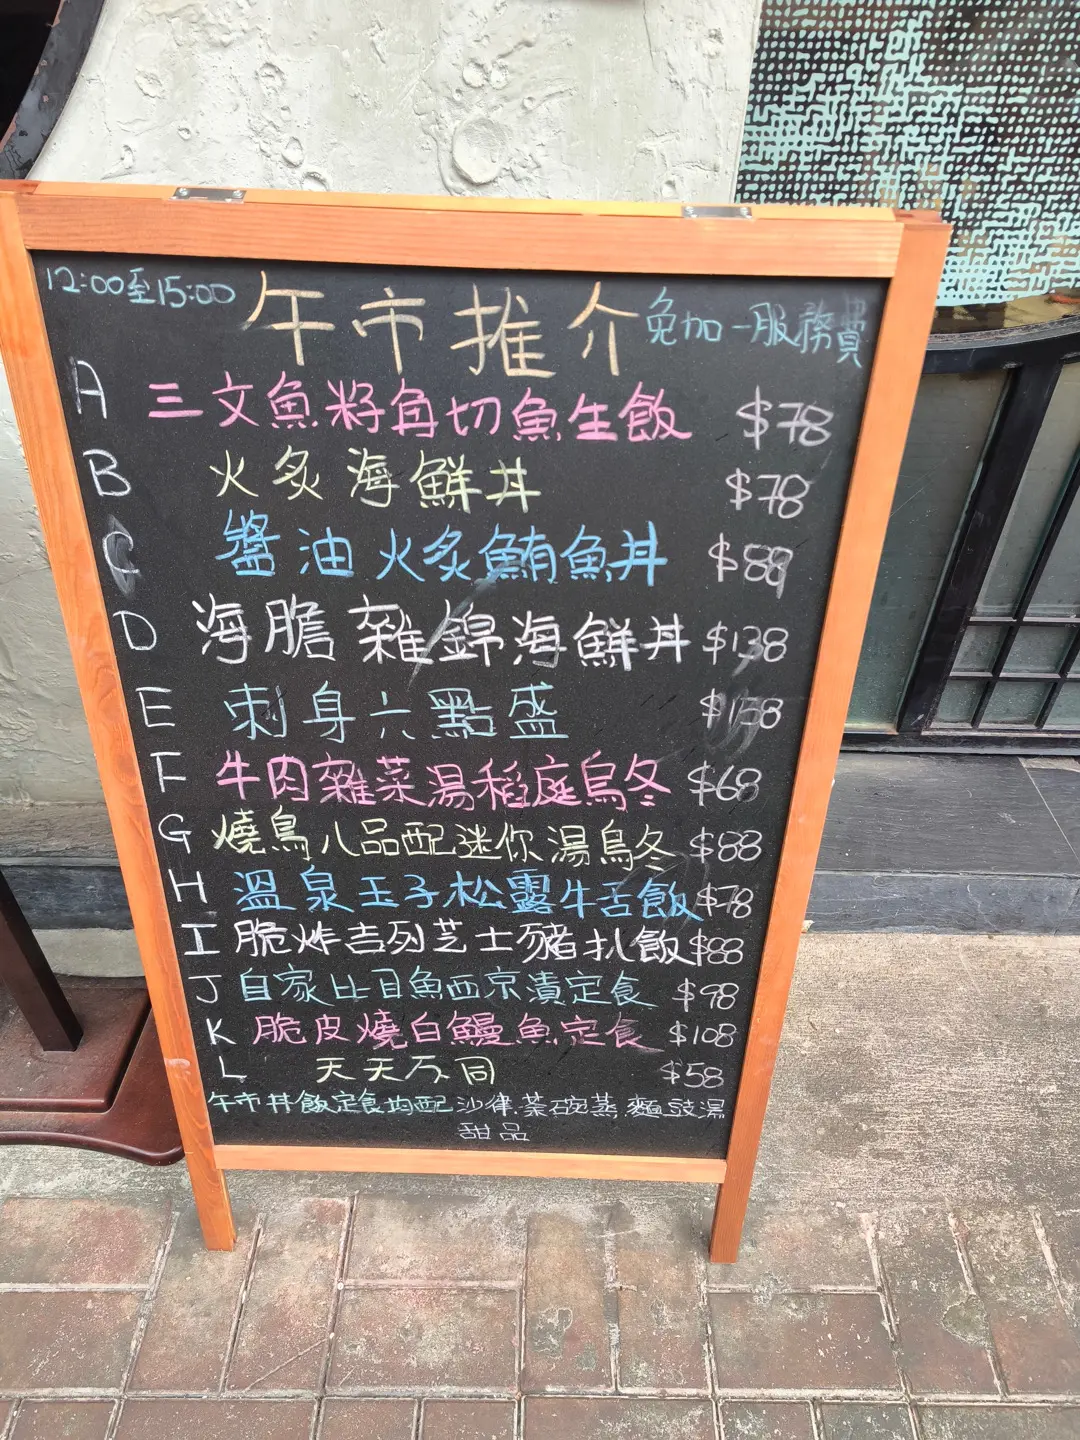 12:00至15:00 午市推介 免加一服務費
A 三文魚籽角切魚生飯 $78
B 火炙海鮮丼 $78
C 醬油火炙鮪魚丼 $88
D 海膽雜錦海鮮丼 $138
E 刺身六點盛 $158
F 牛肉雜菜湯稻庭烏冬 $68
G 燒鳥八品配迷你湯烏冬 $88
H 溫泉玉子松露牛舌飯 $78
I 脆炸吉列芝士豬扒飯 $88
J 自家比目魚西京漬定食 $98
K 脆皮燒白鰻魚定食 $108
L 天天不同 $58
午市丼飯定食均配沙律.茶碗蒸.麵豉湯
甜品